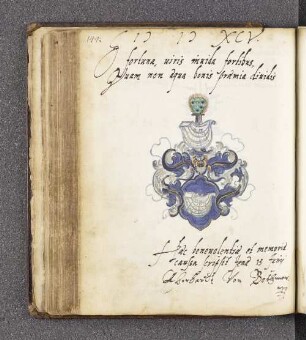 CIƆ IƆ XCV.
O fortuna, uiris inuida fortibus,
Quam non æqua bonis præmia diuidis
Hæc beneuolentiæ et memoriæ
causa scripsit Jenæ 13
Von